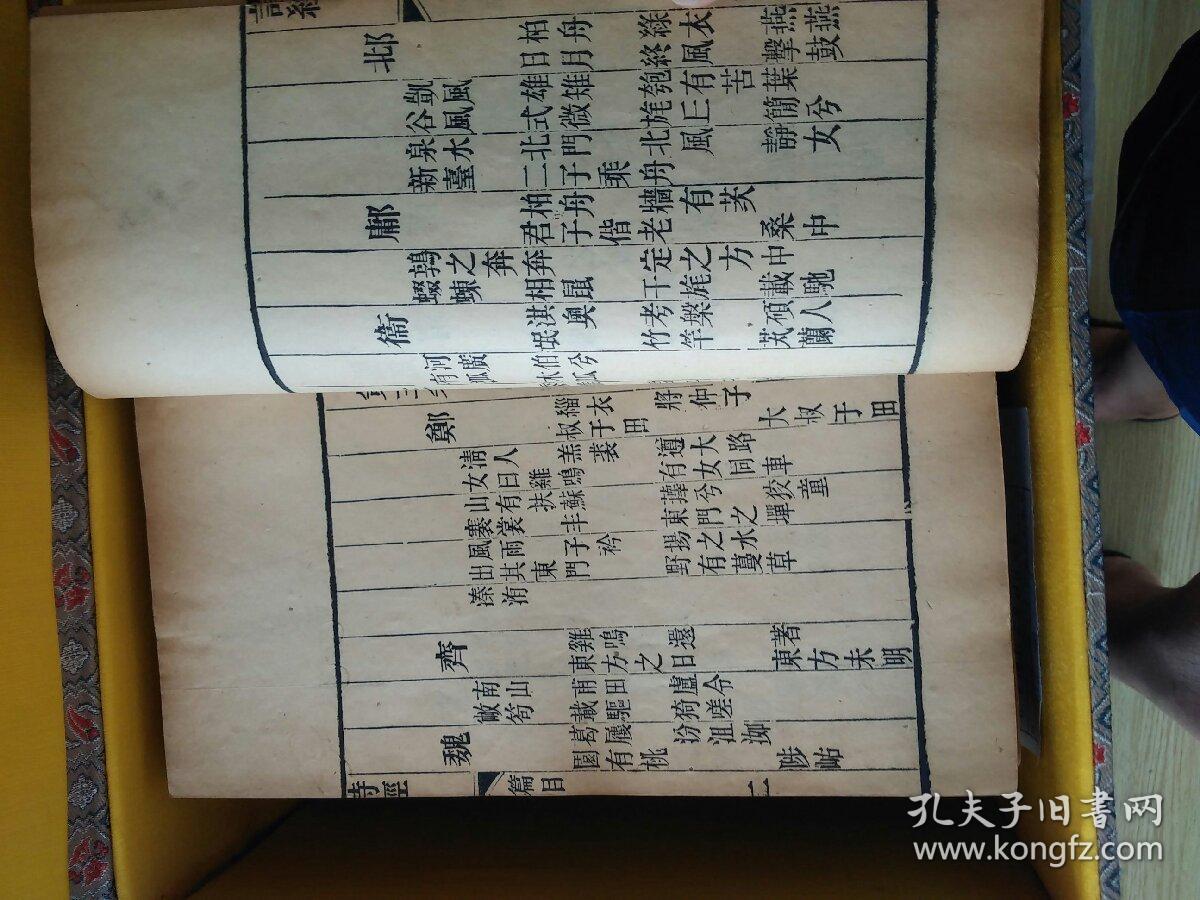 詩經
邶 柏舟 綠衣 燕燕
日月 終風 擊鼓
凱風 雄雉 匏有苦葉
谷風 式微 旄丘 簡兮
泉水 北門 北風 靜女
新臺 二子乘舟
鄘 柏舟 牆有茨 桑中
君子偕老
鶉之奔奔 定之方中
蝃蝀 相鼠 干旄 載馳
衛 淇奧 考槃 碩人
氓 竹竿 芄蘭
河廣 伯兮
鄭 緇衣 將仲子 大叔于田
叔于田
清人 羔裘 遵大路
女曰雞鳴 有女同車
山有扶蘇 蘀兮 狡童
褰裳 丰 東門之墠
風雨 子衿 揚之水
出其東門 野有蔓草
溱洧
齊 雞鳴 還 著
東方之日 東方未明
南山 甫田 盧令
敝笱 載驅 猗嗟
魏 葛屨 汾沮洳 陟岵
園有桃
詩經 篇目
孔夫子旧书网
www.kongfz.com